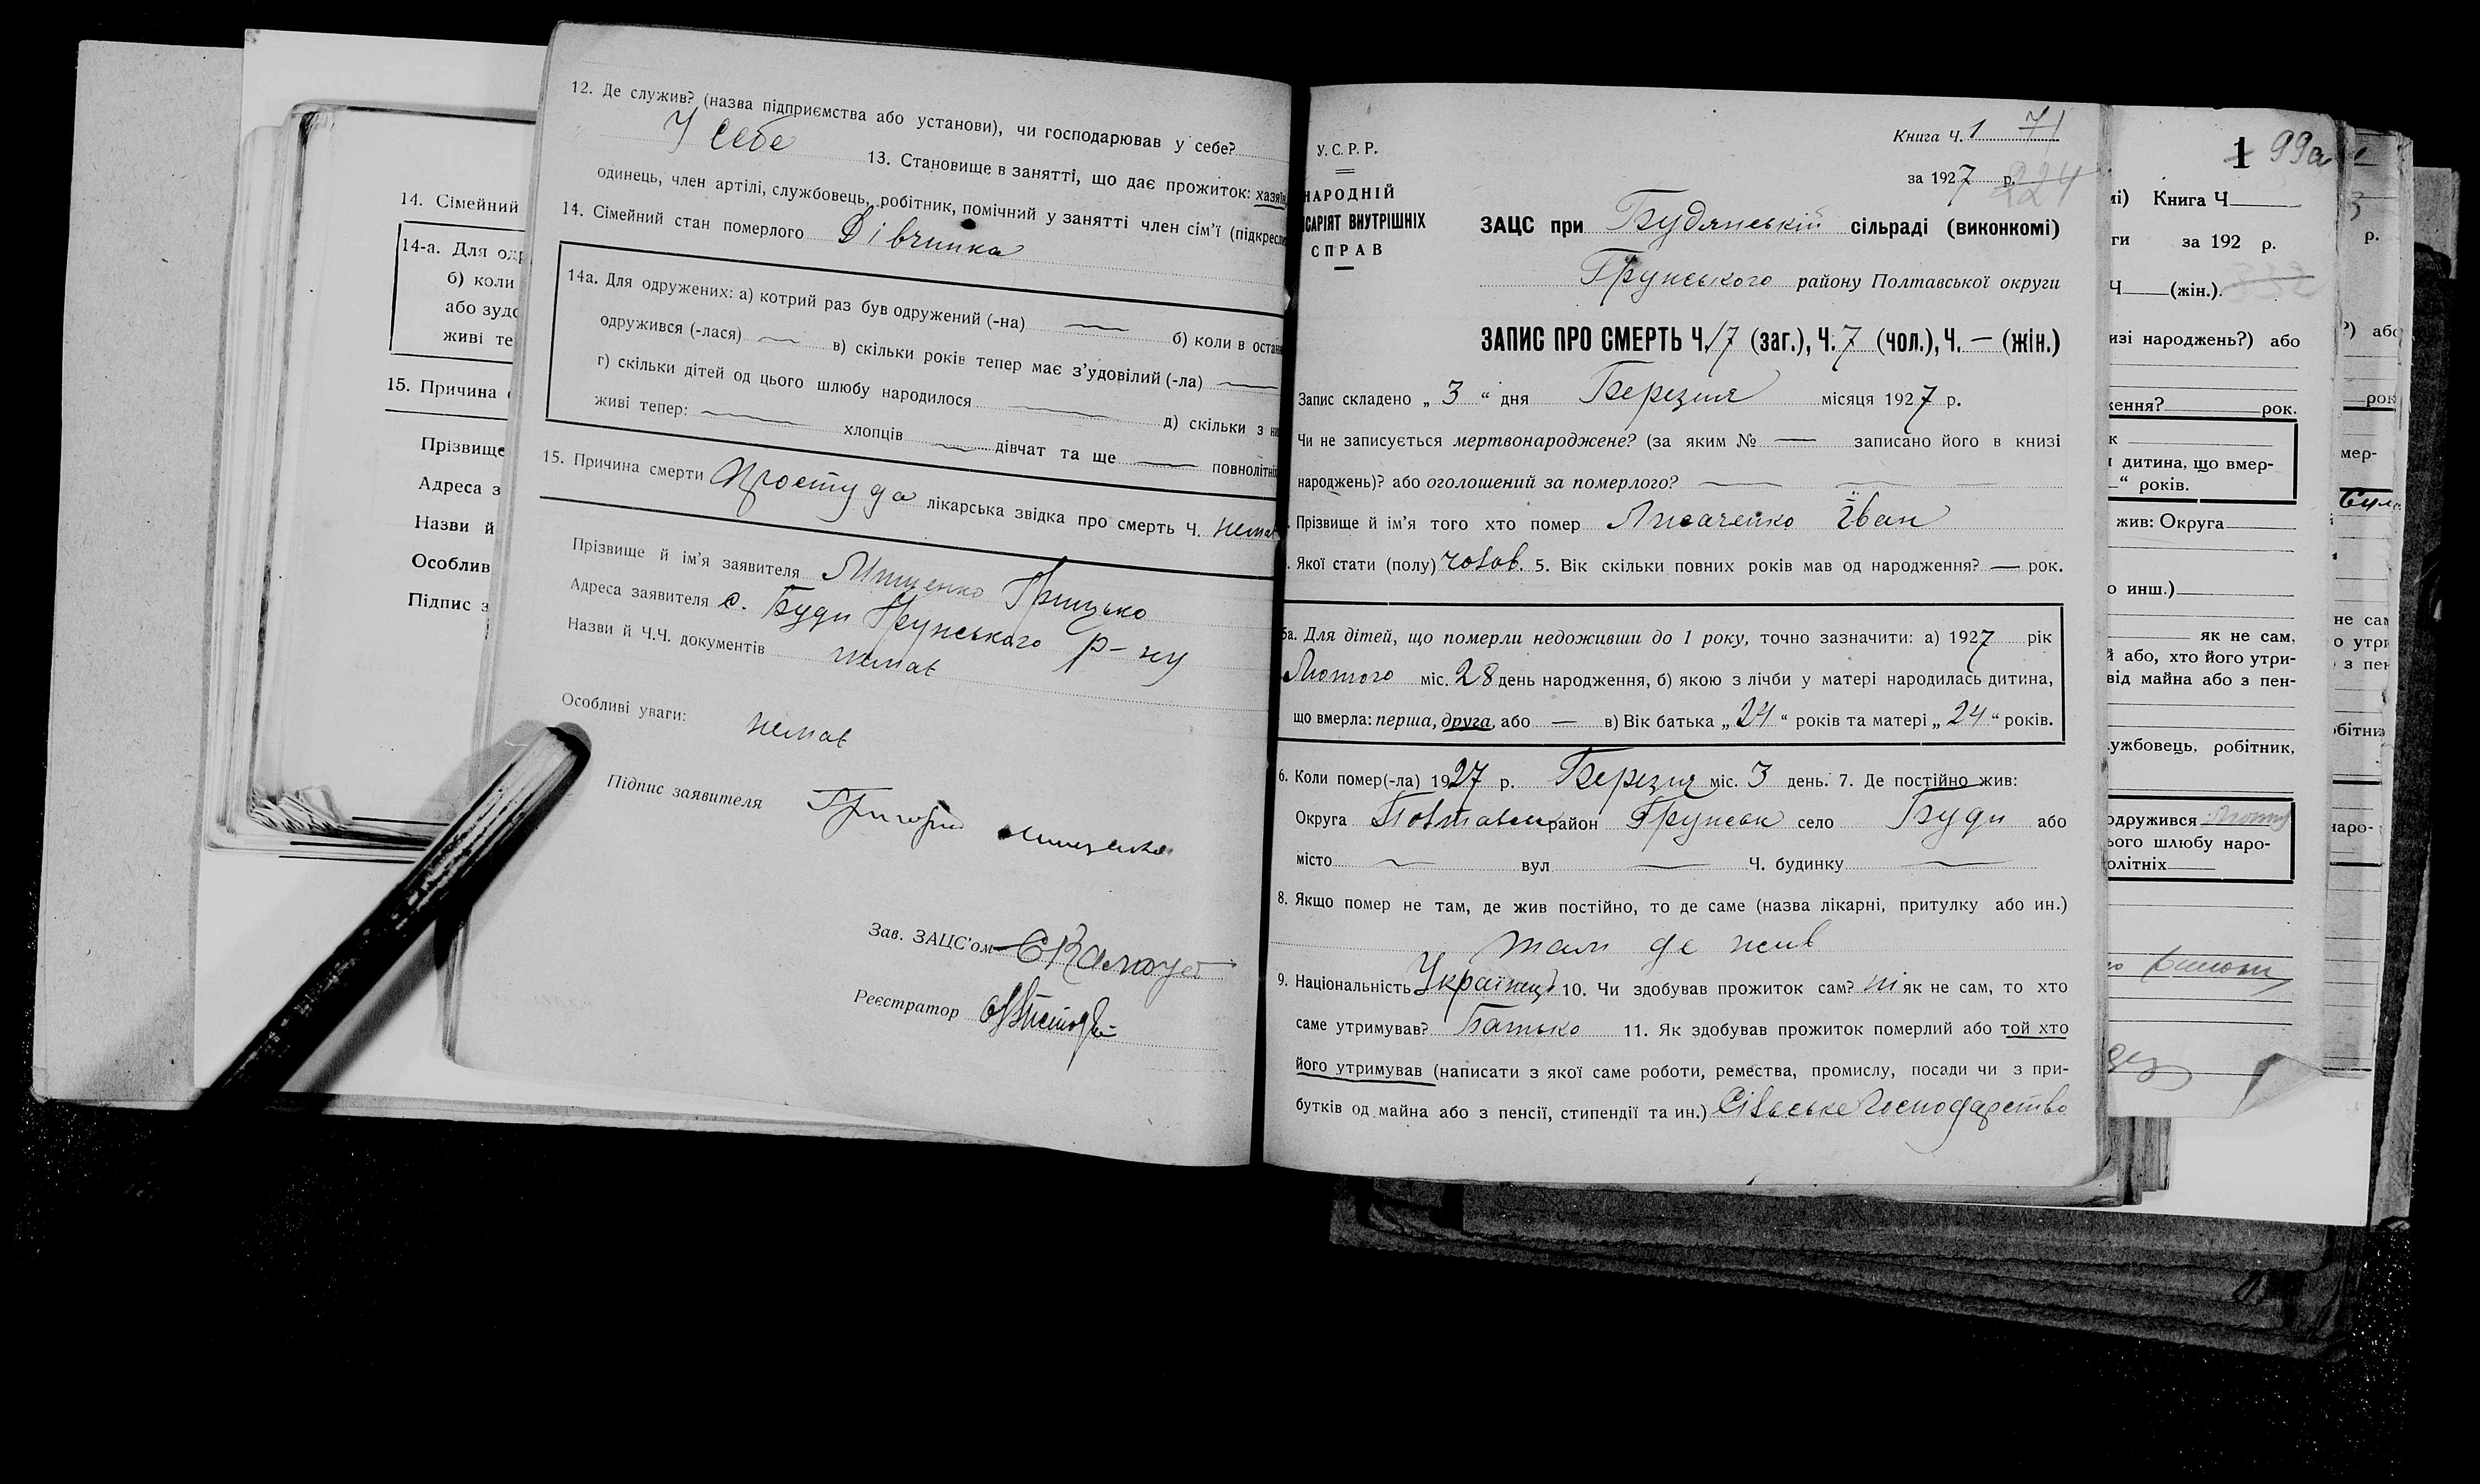 12. Де служив? (назва підприємства або установи), чи господарював у себе?
У себе 13. Становище в занятті, що дає прожиток: хазяїн,
одинець, член артілі, службовець, робітник, помічний у занятті член сім'ї (підкреслі
14. Сімейний стан померлого Дівчинка
14а. Для одружених: а) котрий раз був одружений (-на) — б) коли в остан
одружився (-лася) — в) скільки років тепер має з'удовілий (-ла) —
г) скільки дітей од цього шлюбу народилося — д) скільки з ни
живі тепер: — хлопців — дівчат та ще — повнолітніх
15. Причина смерти Простуда лікарська звідка про смерть Ч. немає
Прізвище й ім'я заявителя Мищенко Грицько
Адреса заявителя с. Буди Грунського р-ну
Назви й Ч.Ч. документів немає
Особливі уваги: немає
Підпис заявителя Григорий Мищенко
Зав. ЗАЦС'ом
Реєстратор
14. Сімейний
14-а. Для одр
б) коли
або зудо
живі те
15. Причина с
Прізвище
Адреса з
Назви й
Особлив
Підпис з
У.С.Р.Р.
НАРОДНІЙ
ІСАРІЯТ ВНУТРІШНІХ
СПРАВ
Книга Ч. 1 71
за 1927 р. 224
ЗАЦС при Будянській сільраді (виконкомі)
Грунського району Полтавської округи
ЗАПИС ПРО СМЕРТЬ Ч. 17 (заг.), Ч. 7 (чол.), Ч. — (жін.)
Запис складено „ 3 “ дня Березня місяця 1927 р.
Чи не записується мертвонароджене? (за яким № — записано його в книзі
народжень)? або оголошений за померлого? — — —
Прізвище й ім'я того хто помер Лисаченко Іван
. Якої стати (полу) чолов. 5. Вік скільки повних років мав од народження? — рок.
5а. Для дітей, що померли недоживши до 1 року, точно зазначити: а) 1927 рік
Лютого міс. 28 день народження, б) якою з лічби у матері народилась дитина,
що вмерла: перша, друга, або — в) Вік батька „ 24 “ років та матері „ 24 “ років.
6. Коли помер(-ла) 1927 р. Березня міс. 3 день. 7. Де постійно жив:
Округа Полтавськ район Грунськ село Буди або
місто — вул — Ч. будинку —
8. Якщо помер не там, де жив постійно, то де саме (назва лікарні, притулку або ин.)
там де жив
9. Національність Українець 10. Чи здобував прожиток сам? ні як не сам, то хто
саме утримував? Батько 11. Як здобував прожиток померлий або той хто
його утримував (написати з якої саме роботи, ремества, промислу, посади чи з при-
бутків од майна або з пенсії, стипендії та ин.) Сільське господарство
1 99а
мі) Книга Ч
ги за 192 р.
Ч (жін.).
изі народжень?) або
ження? рок.
к
и дитина, що вмер-
“ років.
жив: Округа
о инш.)
як не сам,
й або, хто його утри-
від майна або з пен-
ужбовець, робітник,
одружився
ього шлюбу наро-
олітніх
р.
?) або
рок
мер-
не сам
о утри
з пен
обітни
наро-